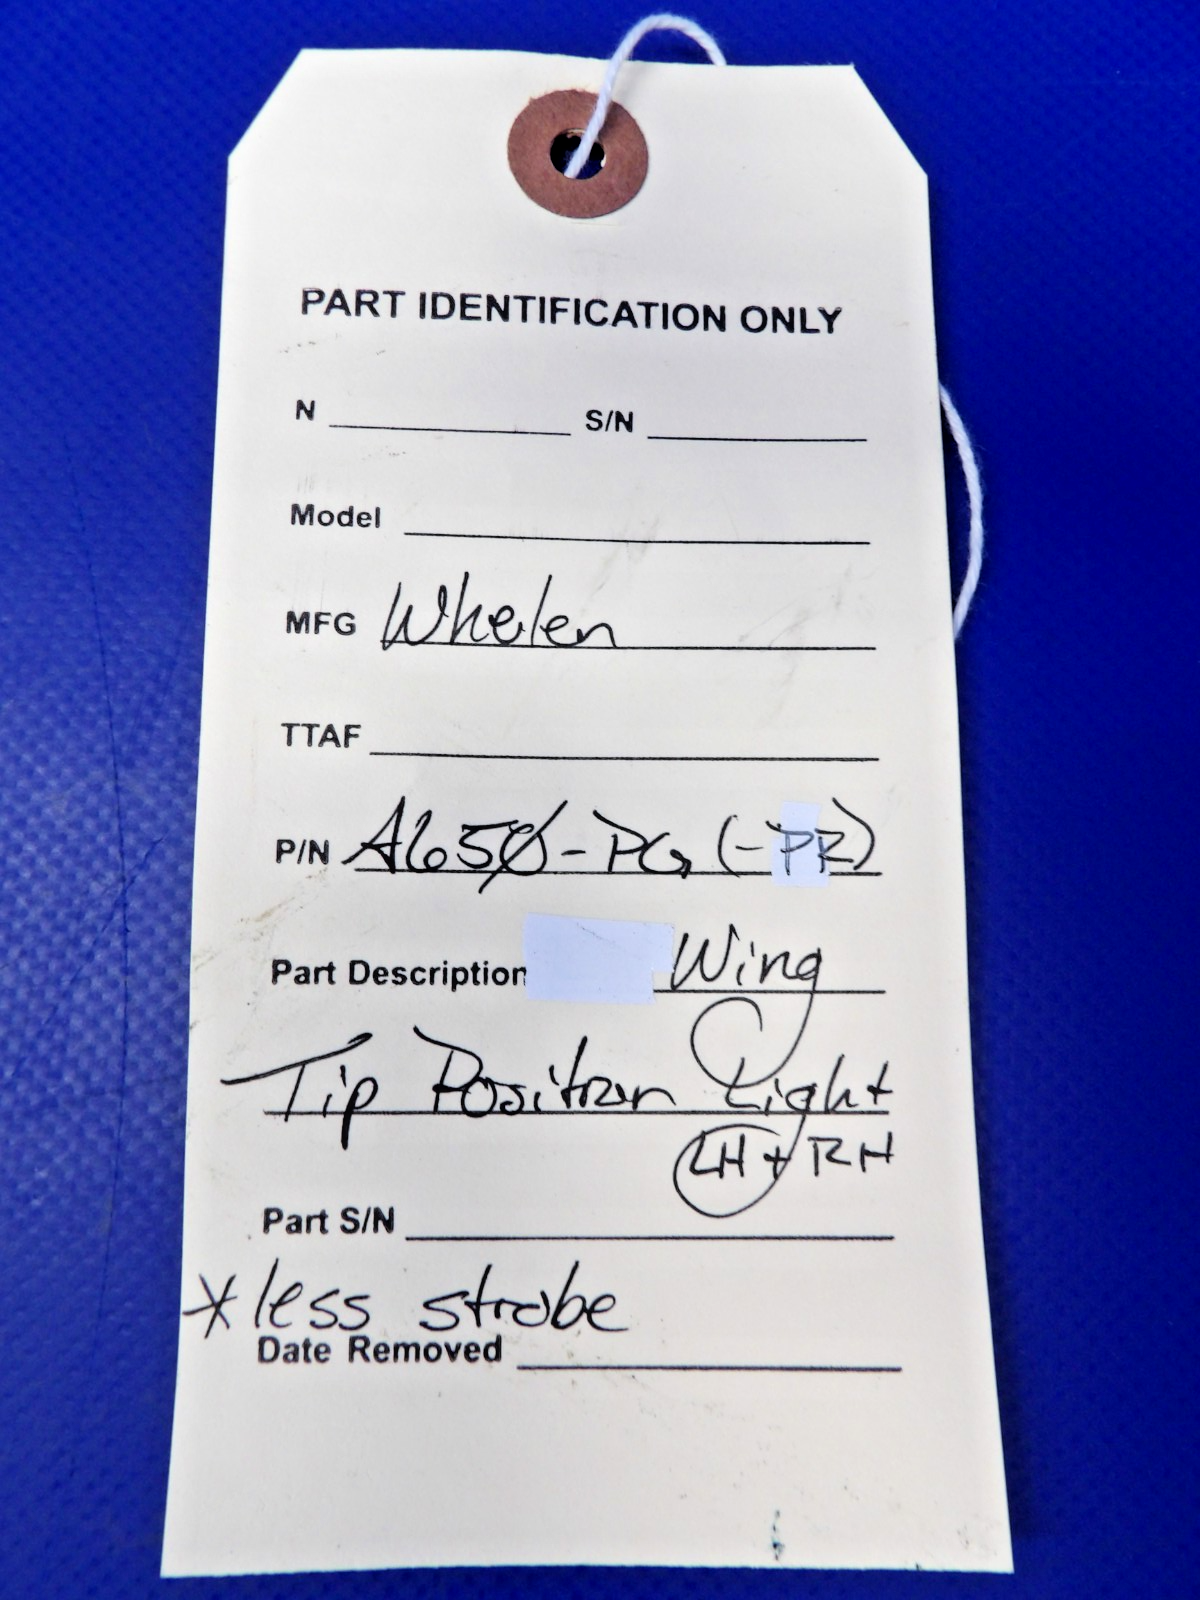 PART IDENTIFICATION ONLY
N S/N
Model
MFG Whelen
TTAF
P/N A650-PG (-PR)
Part Description Wing
Tip Position Light
LH + RH
Part S/N
*less strobe
Date Removed